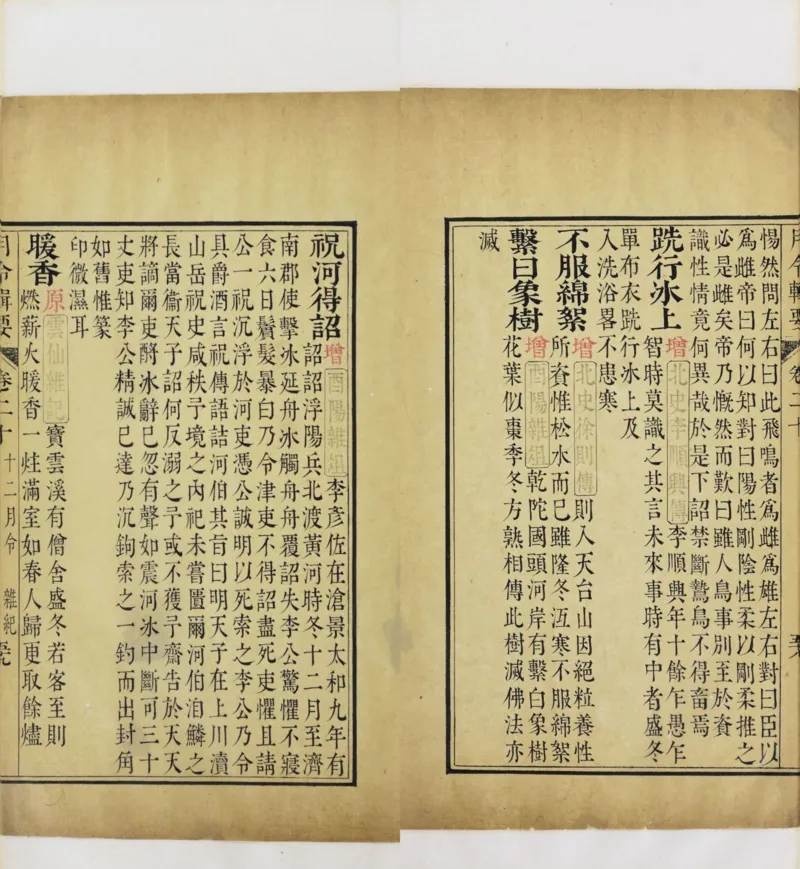 月令輯要 卷二十
惕然問左右曰此飛鳴者爲雌爲雄左右對曰臣以
爲雌帝曰何以知對曰陽性剛陰性柔以剛柔推之
必是雌矣帝乃慨然而歎曰雖人鳥事別至於資
識性情竟何異哉於是下詔禁斷鷙鳥不得畜焉
跣行冰上 增 北史李順興傳 李順興年十餘乍愚乍
智時莫識之其言未來事時有中者盛冬
單布衣跣行冰上及
入洗浴畧不患寒
不服綿絮 增 北史徐則傳 則入天台山因絕粒養性
所資惟松水而已雖隆冬沍寒不服綿絮
繫白象樹 增 酉陽雜俎 乾陀國頭河岸有繫白象樹
花葉似棗季冬方熟相傳此樹滅佛法亦
滅
祝河得詔 增 酉陽雜俎 李彥佐在滄景太和九年有
詔詔浮陽兵北渡黃河時冬十二月至濟
南郡使擊冰延舟冰觸舟舟覆詔失李公驚懼不寢
食六日鬢髮暴白乃令津吏不得詔盡死吏懼且請
公一祝沉浮於河吏憑公誠明以死索之李公乃令
具爵酒言祝傳語詰河伯其旨曰明天子在上川瀆
山岳祝史咸秩予境之內祀未嘗匱爾河伯洎鱗之
長當衞天子詔何反溺之予或不獲予齋告於天天
將謫爾吏酹冰辭已忽有聲如震河冰中斷可三十
丈吏知李公精誠已達乃沉鉤索之一釣而出封角
如舊惟篆
印微濕耳
暖香 原 雲林雜記 寶雲溪有僧舍盛冬若客至則
燃薪火暖香一炷滿室如春人歸更取餘燼
月令輯要 卷二十 十二月令 雜紀